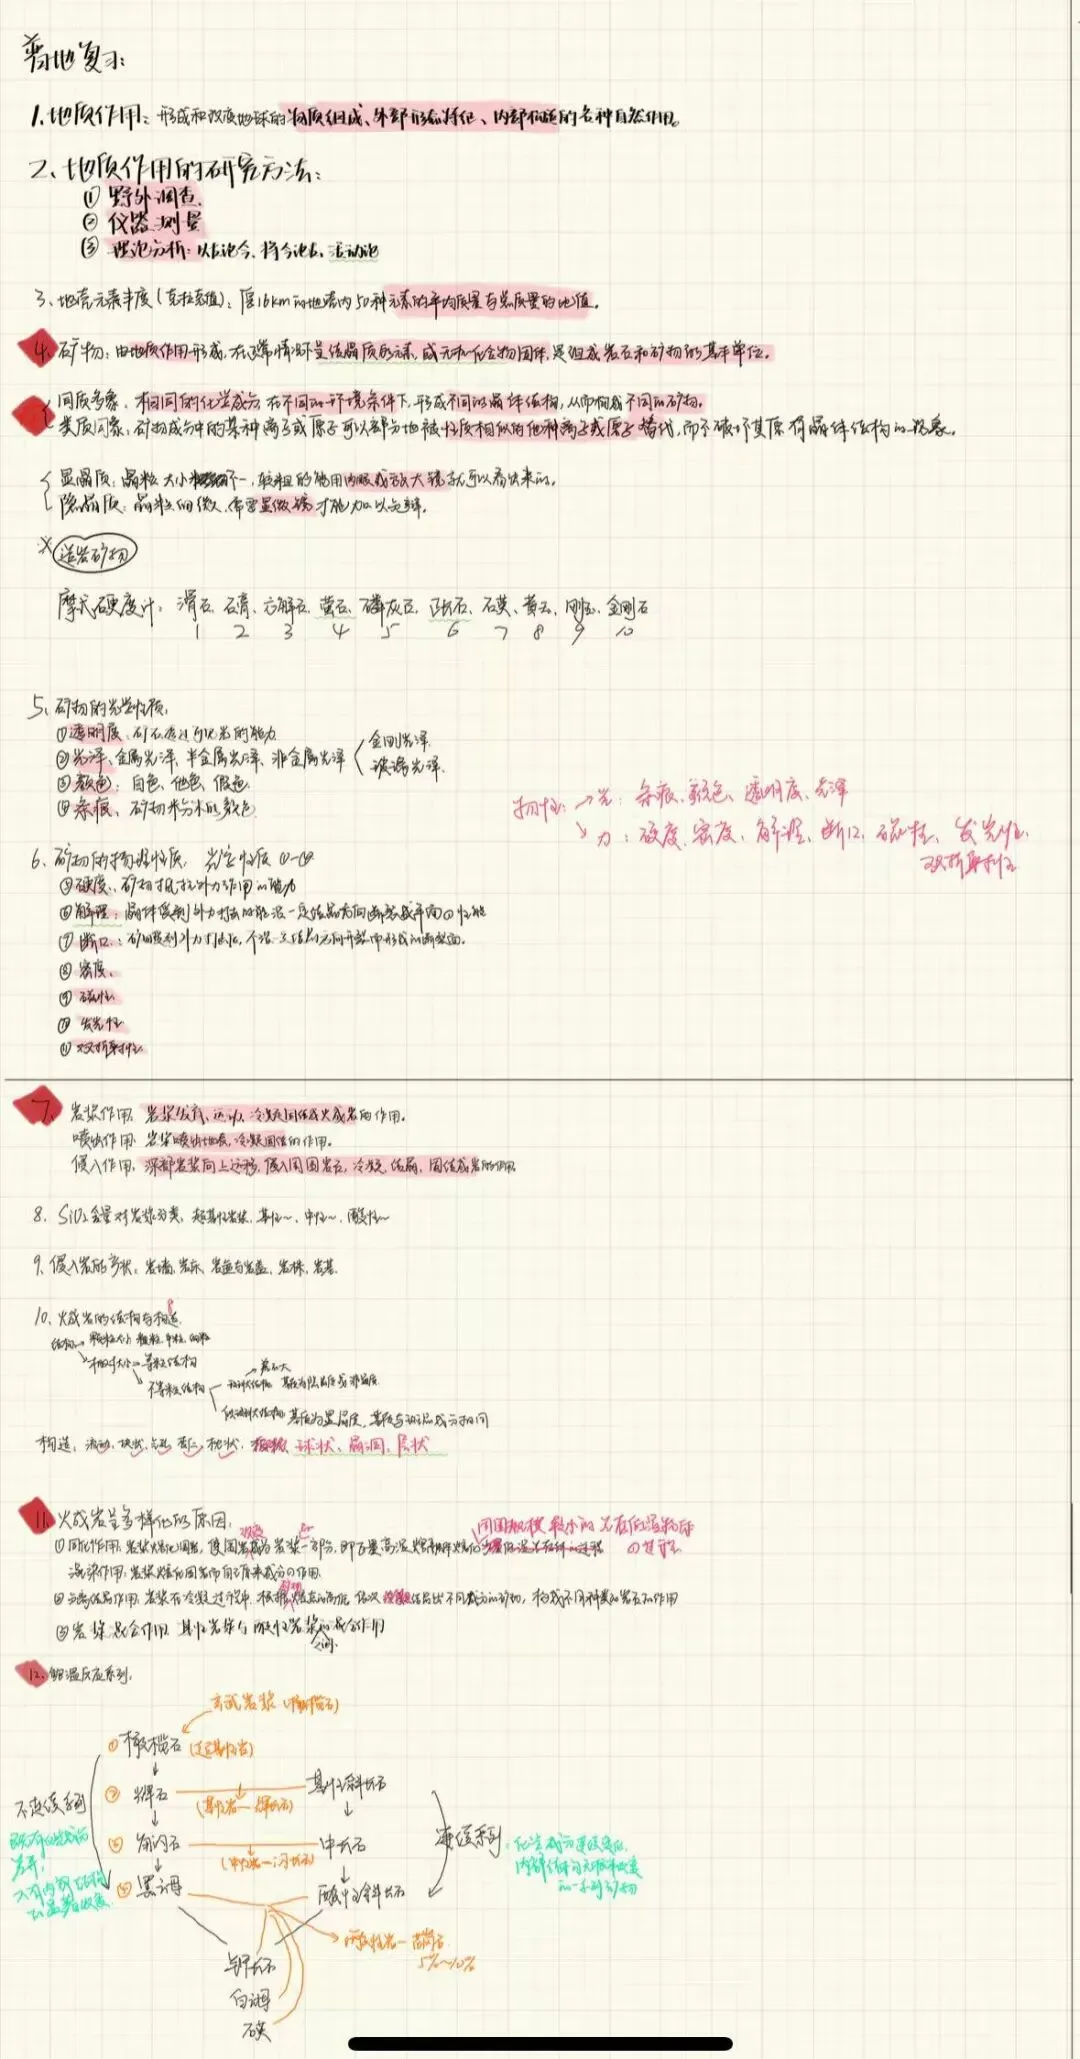 普地复习:
1.地质作用: 形成和改变地球的物质组成、外部形态特征、内部构造的各种自然作用。
2、地质作用的研究方法:
① 野外调查.
② 仪器测量
③ 理论分析: 以古论今、将今论古、活动论
3、地壳元素丰度(克拉克值): 厚16km的地壳内50种元素的平均质量与总质量的比值。
4. 矿物: 由地质作用形成, 在正常情况下呈结晶质的元素, 或无机化合物固体, 是组成岩石和矿物的基本单位。
同质多象、相同的化学成分, 在不同的环境条件下, 形成不同的晶体结构, 从而构成不同的矿物。
类质同象: 矿物成分中的某种离子或原子可以部分地被性质相似的他种离子或原子替代, 而不破坏其原有晶体结构的现象。
显晶质: 晶粒大小不一, 较粗的能用肉眼或放大镜就可以看出来的。
隐晶质: 晶粒细微, 需要显微镜才能加以分辨。
造岩矿物
摩氏硬度计: 滑石、石膏、方解石、萤石、磷灰石、正长石、石英、黄玉、刚玉、金刚石
1 2 3 4 5 6 7 8 9 10
5、矿物的光学性质.
①透明度、矿石透过可见光的能力
②光泽、金属光泽、半金属光泽、非金属光泽 金刚光泽.
玻璃光泽.
③颜色: 自色、他色、假色.
④条痕、矿物粉末的颜色.
物性: →光: 条痕、颜色、透明度、光泽
↘力: 硬度、密度、解理、断口、磁性、发光性.
双折射性
6、矿物的物理性质, 光学性质①-④
⑤硬度、矿物抵抗外力作用的能力
⑥解理: 晶体受到外力打击时能沿一定结晶方向断裂成平面的性能
⑦断口: 矿物受到外力打击后, 不沿一定结晶方向开裂而形成的断裂面。
⑧ 密度、
⑨ 磁性.
⑩ 发光性
⑪ 双折射性
7、岩浆作用 岩浆发育、运动、冷凝固结成火成岩的作用。
喷出作用: 岩浆喷出地表, 冷凝固结的作用。
侵入作用: 深部岩浆向上运移, 侵入周围岩石, 冷凝、结晶、固结成岩的作用
8、SiO₂含量对岩浆分类: 超基性岩浆, 基性~、中性~、酸性~
9、侵入岩的产状: 岩墙、岩床、岩盆与岩盖、岩株、岩基.
10、火成岩的结构与构造
结构→颗粒大小 粗粒、中粒、细粒
↘相对大小→等粒结构
↘不等粒结构 斑状结构 基质为隐晶质或非晶质.
似斑状结构: 基质为显晶质, 基质与斑晶成分相同
构造: 流动、块状、气孔、杏仁、枕状、球状、晶洞、层状
11、火成岩呈多样化的原因.
混染作用: 岩浆熔化围岩而自己原来成分的作用.
②分离结晶作用: 岩浆在冷凝过程中, 根据矿物熔点的高低 依次结晶出不同成分的矿物, 构成不同种类的岩石的作用
③岩浆混合作用 基性岩浆与酸性岩浆之间的混合作用
12、鲍温反应系列:
玄武岩浆
①橄榄石 (超基性岩)
②辉石 基性斜长石
(基性岩—辉长石)
③角闪石 中长石
(中性岩—闪长石)
④黑云母 酸性斜长石
不连续系列
连续系列: 化学成分连续变化,
酸性岩—花岗石
5%~10%
钾长石
白云母
石英